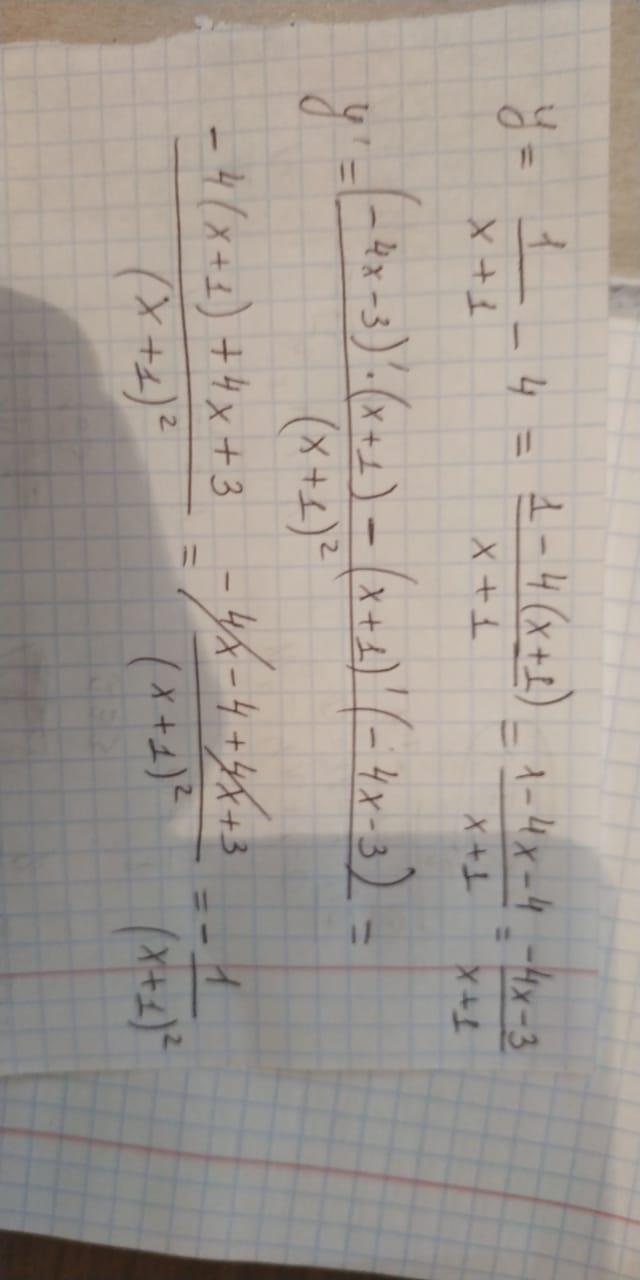 y = 1/(x+1) - 4 = (1-4(x+1))/(x+1) = (1-4x-4)/(x+1) = (-4x-3)/(x+1)
y' = ((-4x-3)'·(x+1)-(x+1)'(-4x-3))/(x+1)² =
(-4(x+1)+4x+3)/(x+1)² = (-4x-4+4x+3)/(x+1)² = - 1/(x+1)²